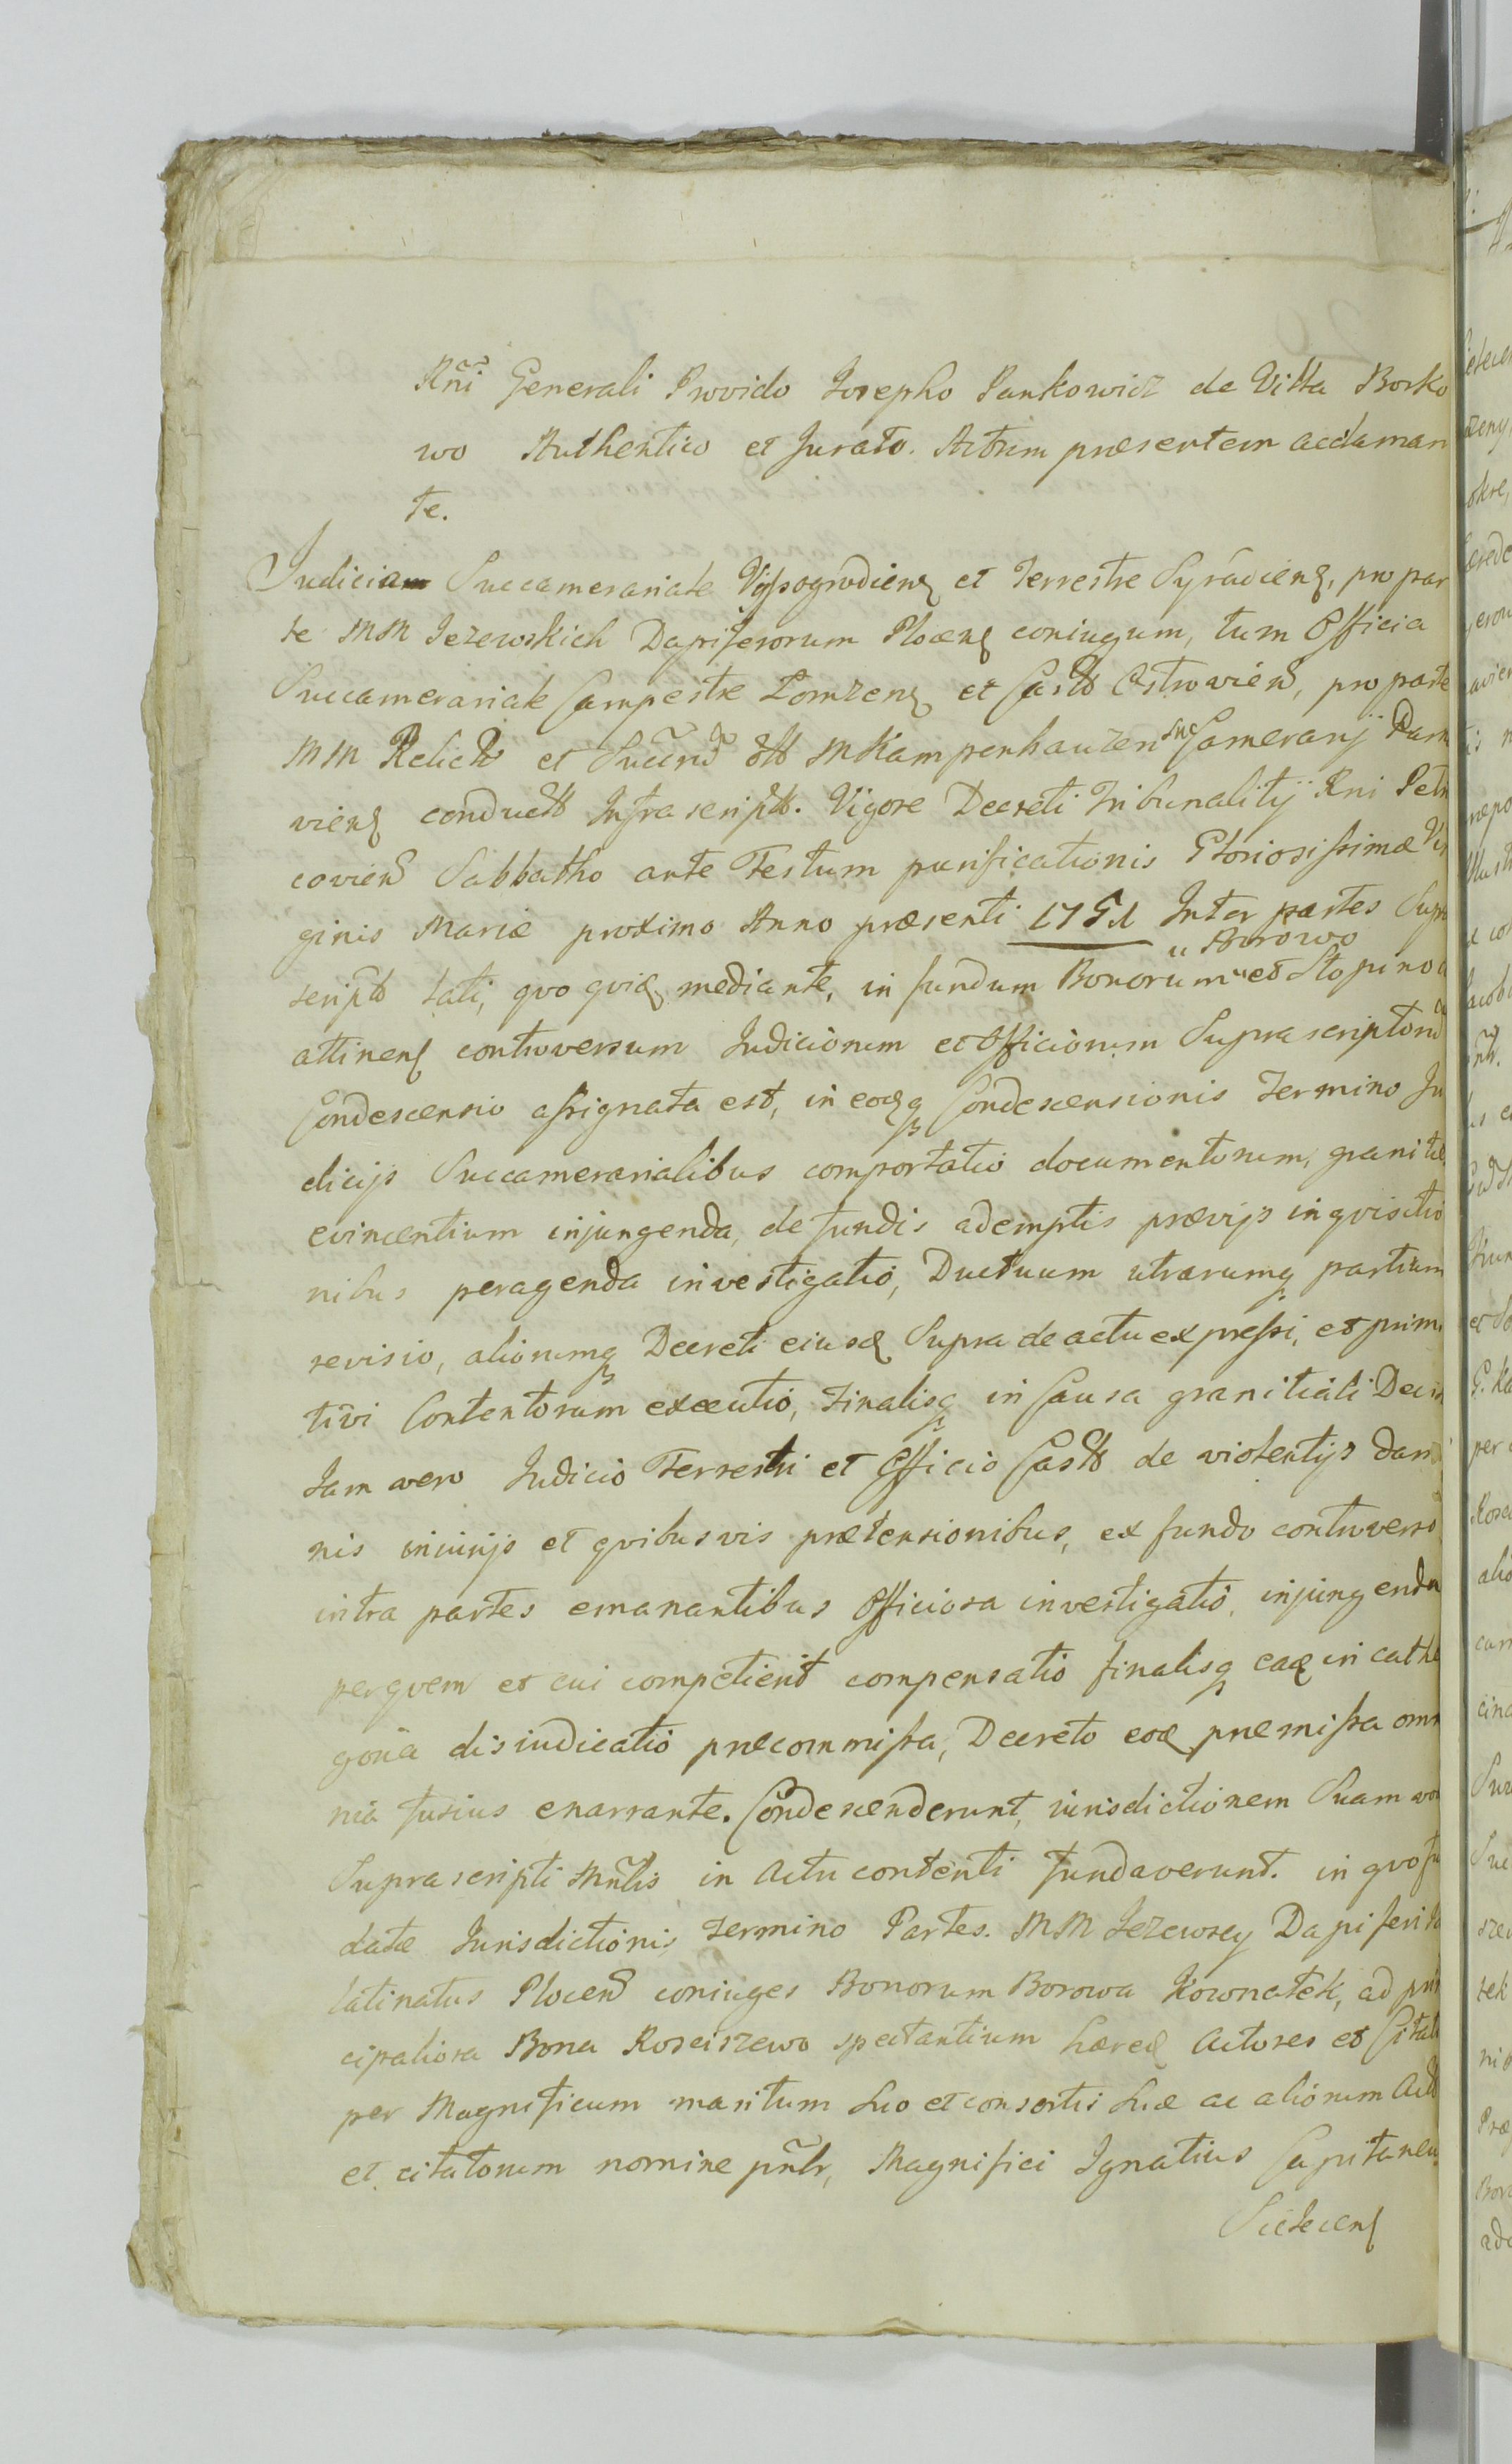 Rñi Generali Provido Josepho Pankowicz de Villa Borko
wo Authentico et Jurato. Actum præsentem acclaman
te.
Judicia Succamerariale Vyssogrodien et Terrestre Syradien, pro par
te MM Jezewskich Dapiferorum Plocen coniugum, tum Officia
Succamerariale Campestre Lomzen et Castr Ostrovien, pro parte
MM Relict et M Kampenhauzen Camerarij Parn
vien conduct Infrascript. Vigore Decreti Tribunalitij Rni Petri
covien Sabbatho ante Festum purificationis Gloriosissimæ Vir
ginis Mariæ proximo Anno præsenti 1751 Inter partes Supra
script lati, qvo qvid mediante, in fundum Bonorum " Borowo " et Stopino
attinen controversum Judiciorum et Officiorum Suprascriptor
Condescensio assignata est, in eodq Condescensionis Termino Ju
dicijs Succamerarialibus comportatio documentorum, granities
evincentium injungenda, de fundis ademptis prævijs inqvisitio
nibus peragenda investigatio, Ductuum utrarumq partium
revisio, aliorumq Decreti eiusd Supra de actu expressi, et primi
tivi Contentorum executio, Finalisq in Causa granitiali Decis
Jam vero Judicio Terrestri et Officio Castr de violentijs dam
nis iniurijs et qvibusvis prætensionibus, ex fundo controverso
intra partes emanantibus Officiosa investigatio, injungenda
perqvem et cui competierit compensatio finalisq ead in cathe
goria disiudicatio præcommissa, Decreto eod præmissa om
nia fusius enarrante. Condescenderunt, iurisdictionem Suam
Suprascripti Mñlis in Actu contenti fundaverunt. in qvo fu
datæ Jurisdictionis Termino Partes. MM Jezewscy Dapiferi Pa
latinatus Plocen coniuges Bonorum Borowa Kownatek, ad prin
cipaliora Bona Rosciszewo spectantium hæred Actores et Citat
per Magnificum maritum suo et consortis suæ ac aliorum Act
et citatorum nomine pñtr, Magnifici Ignatius Capitaneu
Sietecen